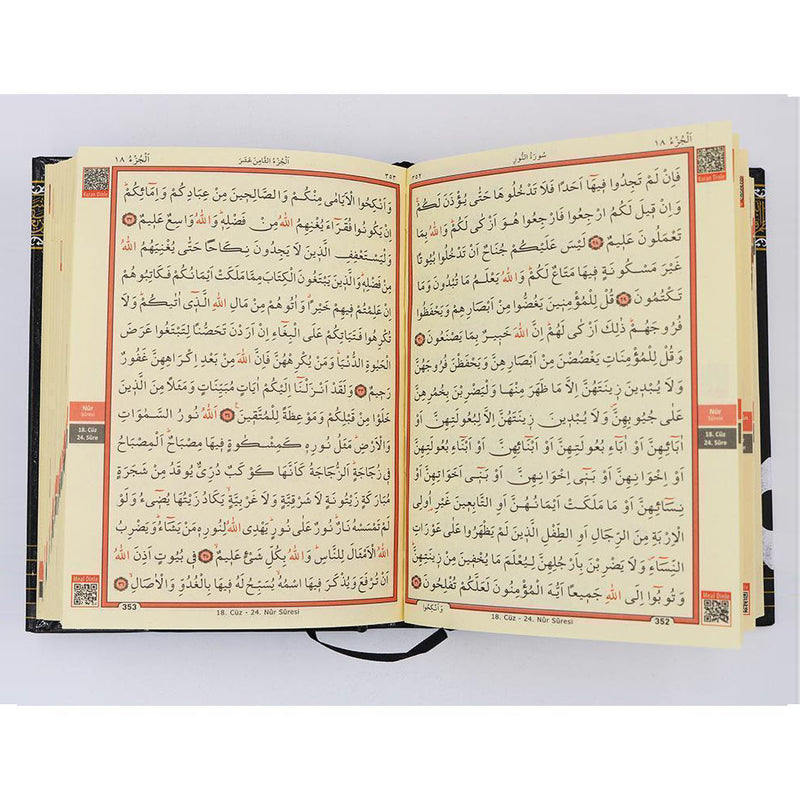 اَلْجُزْءُ ١٨
سُورَةُ النُّورِ
٣٥٢
Kuran Dinle
فَاِنْ لَمْ تَجِدُوا فِيهَٓا اَحَدًا فَلَا تَدْخُلُوهَا حَتّٰى يُؤْذَنَ لَكُمْۚ
وَاِنْ قِيلَ لَكُمُ ارْجِعُوا فَارْجِعُوا هُوَ اَزْكٰى لَكُمْۜ وَاللّٰهُ بِمَا
تَعْمَلُونَ عَلِيمٌ ﴿٢٨﴾ لَيْسَ عَلَيْكُمْ جُنَاحٌ اَنْ تَدْخُلُوا بُيُوتًا
غَيْرَ مَسْكُونَةٍ فِيهَا مَتَاعٌ لَكُمْۜ وَاللّٰهُ يَعْلَمُ مَا تُبْدُونَ وَمَا
تَكْتُمُونَ ﴿٢٩﴾ قُلْ لِلْمُؤْمِنِينَ يَغُضُّوا مِنْ اَبْصَارِهِمْ وَيَحْفَظُوا
فُرُوجَهُمْۜ ذٰلِكَ اَزْكٰى لَهُمْۜ اِنَّ اللّٰهَ خَبِيرٌ بِمَا يَصْنَعُونَ ﴿٣٠﴾
وَقُلْ لِلْمُؤْمِنَاتِ يَغْضُضْنَ مِنْ اَبْصَارِهِنَّ وَيَحْفَظْنَ فُرُوجَهُنَّ
وَلَا يُبْدِينَ زِينَتَهُنَّ اِلَّا مَا ظَهَرَ مِنْهَا وَلْيَضْرِبْنَ بِخُمُرِهِنَّ
عَلٰى جُيُوبِهِنَّۖ وَلَا يُبْدِينَ زِينَتَهُنَّ اِلَّا لِبُعُولَتِهِنَّ اَوْ
اٰبَٓائِهِنَّ اَوْ اٰبَٓاءِ بُعُولَتِهِنَّ اَوْ اَبْنَٓائِهِنَّ اَوْ اَبْنَٓاءِ بُعُولَتِهِنَّ
اَوْ اِخْوَانِهِنَّ اَوْ بَنِٓي اِخْوَانِهِنَّ اَوْ بَنِٓي اَخَوَاتِهِنَّ اَوْ
نِسَٓائِهِنَّ اَوْ مَا مَلَكَتْ اَيْمَانُهُنَّ اَوِ التَّابِعِينَ غَيْرِ اُو۬لِي
الْاِرْبَةِ مِنَ الرِّجَالِ اَوِ الطِّفْلِ الَّذِينَ لَمْ يَظْهَرُوا عَلٰى عَوْرَاتِ
النِّسَٓاءِۖ وَلَا يَضْرِبْنَ بِاَرْجُلِهِنَّ لِيُعْلَمَ مَا يُخْفِينَ مِنْ زِينَتِهِنَّۜ
وَتُوبُٓوا اِلَى اللّٰهِ جَمِيعًا اَيُّهَ الْمُؤْمِنُونَ لَعَلَّكُمْ تُفْلِحُونَ ﴿٣١﴾
Nûr
Sûresi
18. Cüz
24. Sûre
Meal Dinle
وَاَنْكِحُوا
18. Cüz - 24. Nûr Sûresi
352
٣٥٣
اَلْجُزْءُ الثَّامِنُ عَشَرَ
اَلْجُزْءُ ١٨
Kuran Dinle
وَاَنْكِحُوا الْاَيَامٰى مِنْكُمْ وَالصَّالِحِينَ مِنْ عِبَادِكُمْ وَاِمَٓائِكُمْۜ
اِنْ يَكُونُوا فُقَرَٓاءَ يُغْنِهِمُ اللّٰهُ مِنْ فَضْلِه۪ۜ وَاللّٰهُ وَاسِعٌ عَلِيمٌ ﴿٣٢﴾
وَلْيَسْتَعْفِفِ الَّذِينَ لَا يَجِدُونَ نِكَاحًا حَتّٰى يُغْنِيَهُمُ اللّٰهُ
مِنْ فَضْلِه۪ۜ وَالَّذِينَ يَبْتَغُونَ الْكِتَابَ مِمَّا مَلَكَتْ اَيْمَانُكُمْ فَكَاتِبُوهُمْ
اِنْ عَلِمْتُمْ فِيهِمْ خَيْرًاۗ وَاٰتُوهُمْ مِنْ مَالِ اللّٰهِ الَّذِٓي اٰتٰيكُمْۜ وَلَا
تُكْرِهُوا فَتَيَاتِكُمْ عَلَى الْبِغَٓاءِ اِنْ اَرَدْنَ تَحَصُّنًا لِتَبْتَغُوا عَرَضَ
الْحَيٰوةِ الدُّنْيَاۜ وَمَنْ يُكْرِهْهُنَّ فَاِنَّ اللّٰهَ مِنْ بَعْدِ اِكْرَاهِهِنَّ غَفُورٌ
رَحِيمٌ ﴿٣٣﴾ وَلَقَدْ اَنْزَلْنَٓا اِلَيْكُمْ اٰيَاتٍ مُبَيِّنَاتٍ وَمَثَلًا مِنَ الَّذِينَ
خَلَوْا مِنْ قَبْلِكُمْ وَمَوْعِظَةً لِلْمُتَّقِينَ۟ ﴿٣٤﴾ اَللّٰهُ نُورُ السَّمٰوَاتِ
وَالْاَرْضِۜ مَثَلُ نُورِه۪ كَمِشْكٰوةٍ فِيهَا مِصْبَاحٌۜ اَلْمِصْبَاحُ
فِي زُجَاجَةٍۜ اَلزُّجَاجَةُ كَاَنَّهَا كَوْكَبٌ دُرِّيٌّ يُوقَدُ مِنْ شَجَرَةٍ
مُبَارَكَةٍ زَيْتُونَةٍ لَا شَرْقِيَّةٍ وَلَا غَرْبِيَّةٍۙ يَكَادُ زَيْتُهَا يُضِٓيءُ وَلَوْ
لَمْ تَمْسَسْهُ نَارٌۜ نُورٌ عَلٰى نُورٍۜ يَهْدِي اللّٰهُ لِنُورِه۪ مَنْ يَشَٓاءُۜ وَيَضْرِبُ
اللّٰهُ الْاَمْثَالَ لِلنَّاسِۜ وَاللّٰهُ بِكُلِّ شَيْءٍ عَلِيمٌۙ ﴿٣٥﴾ فِي بُيُوتٍ اَذِنَ اللّٰهُ
اَنْ تُرْفَعَ وَيُذْكَرَ فِيهَا اسْمُهُۙ يُسَبِّحُ لَهُ فِيهَا بِالْغُدُوِّ وَالْاٰصَالِۙ ﴿٣٦﴾
Nûr
Sûresi
18. Cüz
24. Sûre
Meal Dinle
353
18. Cüz - 24. Nûr Sûresi